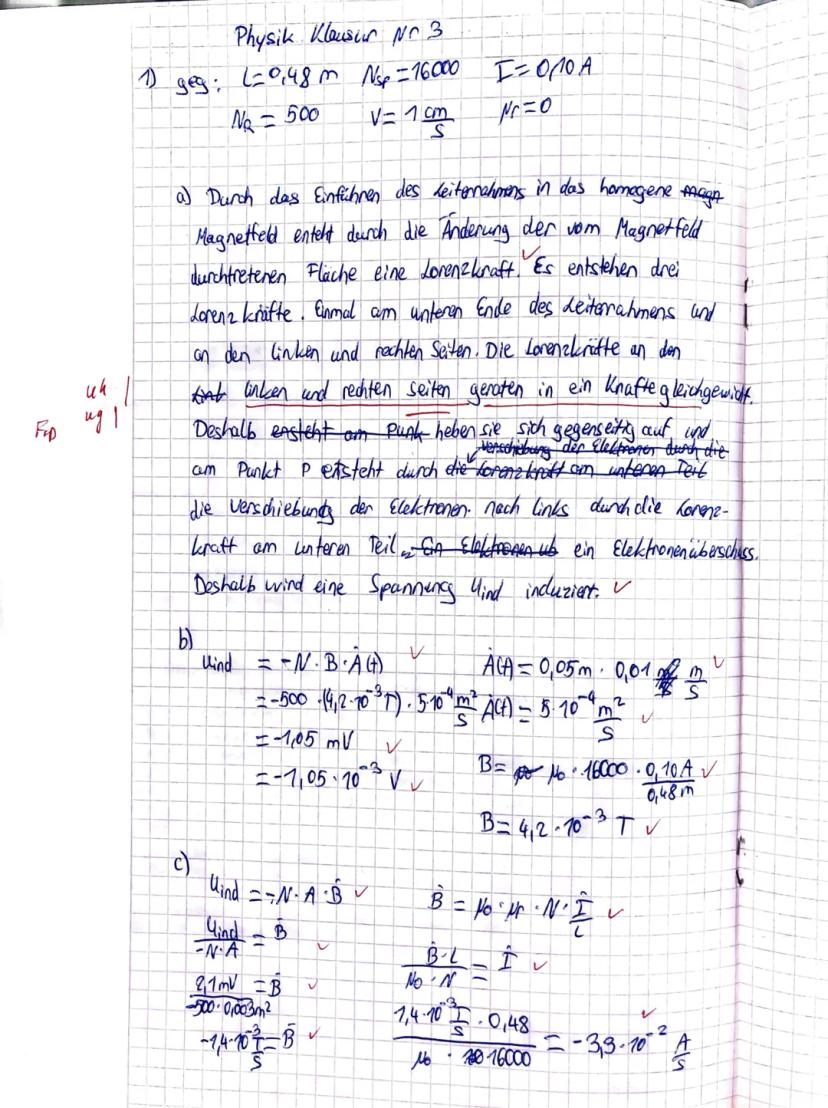 Physik Klausur Nr 3
1) geg: L=0,48 m N_Sp=16000 I=0,10 A
N_R = 500 V= 1 cm/s μr=0
a) Durch das Einführen des Leiterrahmens in das homogene magn
Magnetfeld enteht durch die Änderung der vom Magnetfeld
durchtretenen Fläche eine Lorenzkraft. ✓ Es entstehen drei
Lorenzkräfte. Einmal am unteren Ende des Leiterrahmens und
an den linken und rechten Seiten. Die Lorenzkräfte an den
linken und rechten seiten geraten in ein Kräftegleichgewicht.
Deshalb ensteht am Punk heben sie sich gegenseitig auf und
verschiebung der Elektronen durch die
am Punkt P entsteht durch die Lorenzkraft am unteren Teil
die Verschiebung der Elektronen nach links durch die Lorenz-
kraft am unteren Teil Ein Elektronen ub ein Elektronenüberschuss.
Deshalb wird eine Spannung Uind induziert. ✓
b)
Uind = -N · B · Ȧ(t) ✓ Ȧ(t) = 0,05m · 0,01 m/s ✓
= -500 · (4,2·10⁻³T) · 5·10⁻⁴ m²/s Ȧ(t) = 5·10⁻⁴ m²/s ✓
= -1,05 mV ✓
= -1,05·10⁻³ V ✓ B = μ₀ · 16000 · 0,10 A/0,48 m ✓
B = 4,2·10⁻³ T ✓
c)
Uind = -N · A · Ḃ ✓ Ḃ = μ₀ · μr · N · İ/L ✓
Uind/-N·A = Ḃ ✓ Ḃ·L/μ₀·N = İ ✓
2,1mV/-500·0,003m² = Ḃ ✓
-1,4·10⁻³ T/s = Ḃ ✓ 1,4·10⁻³ T/s · 0,48/μ₀ · 16000 = -3,3·10⁻² A/s ✓